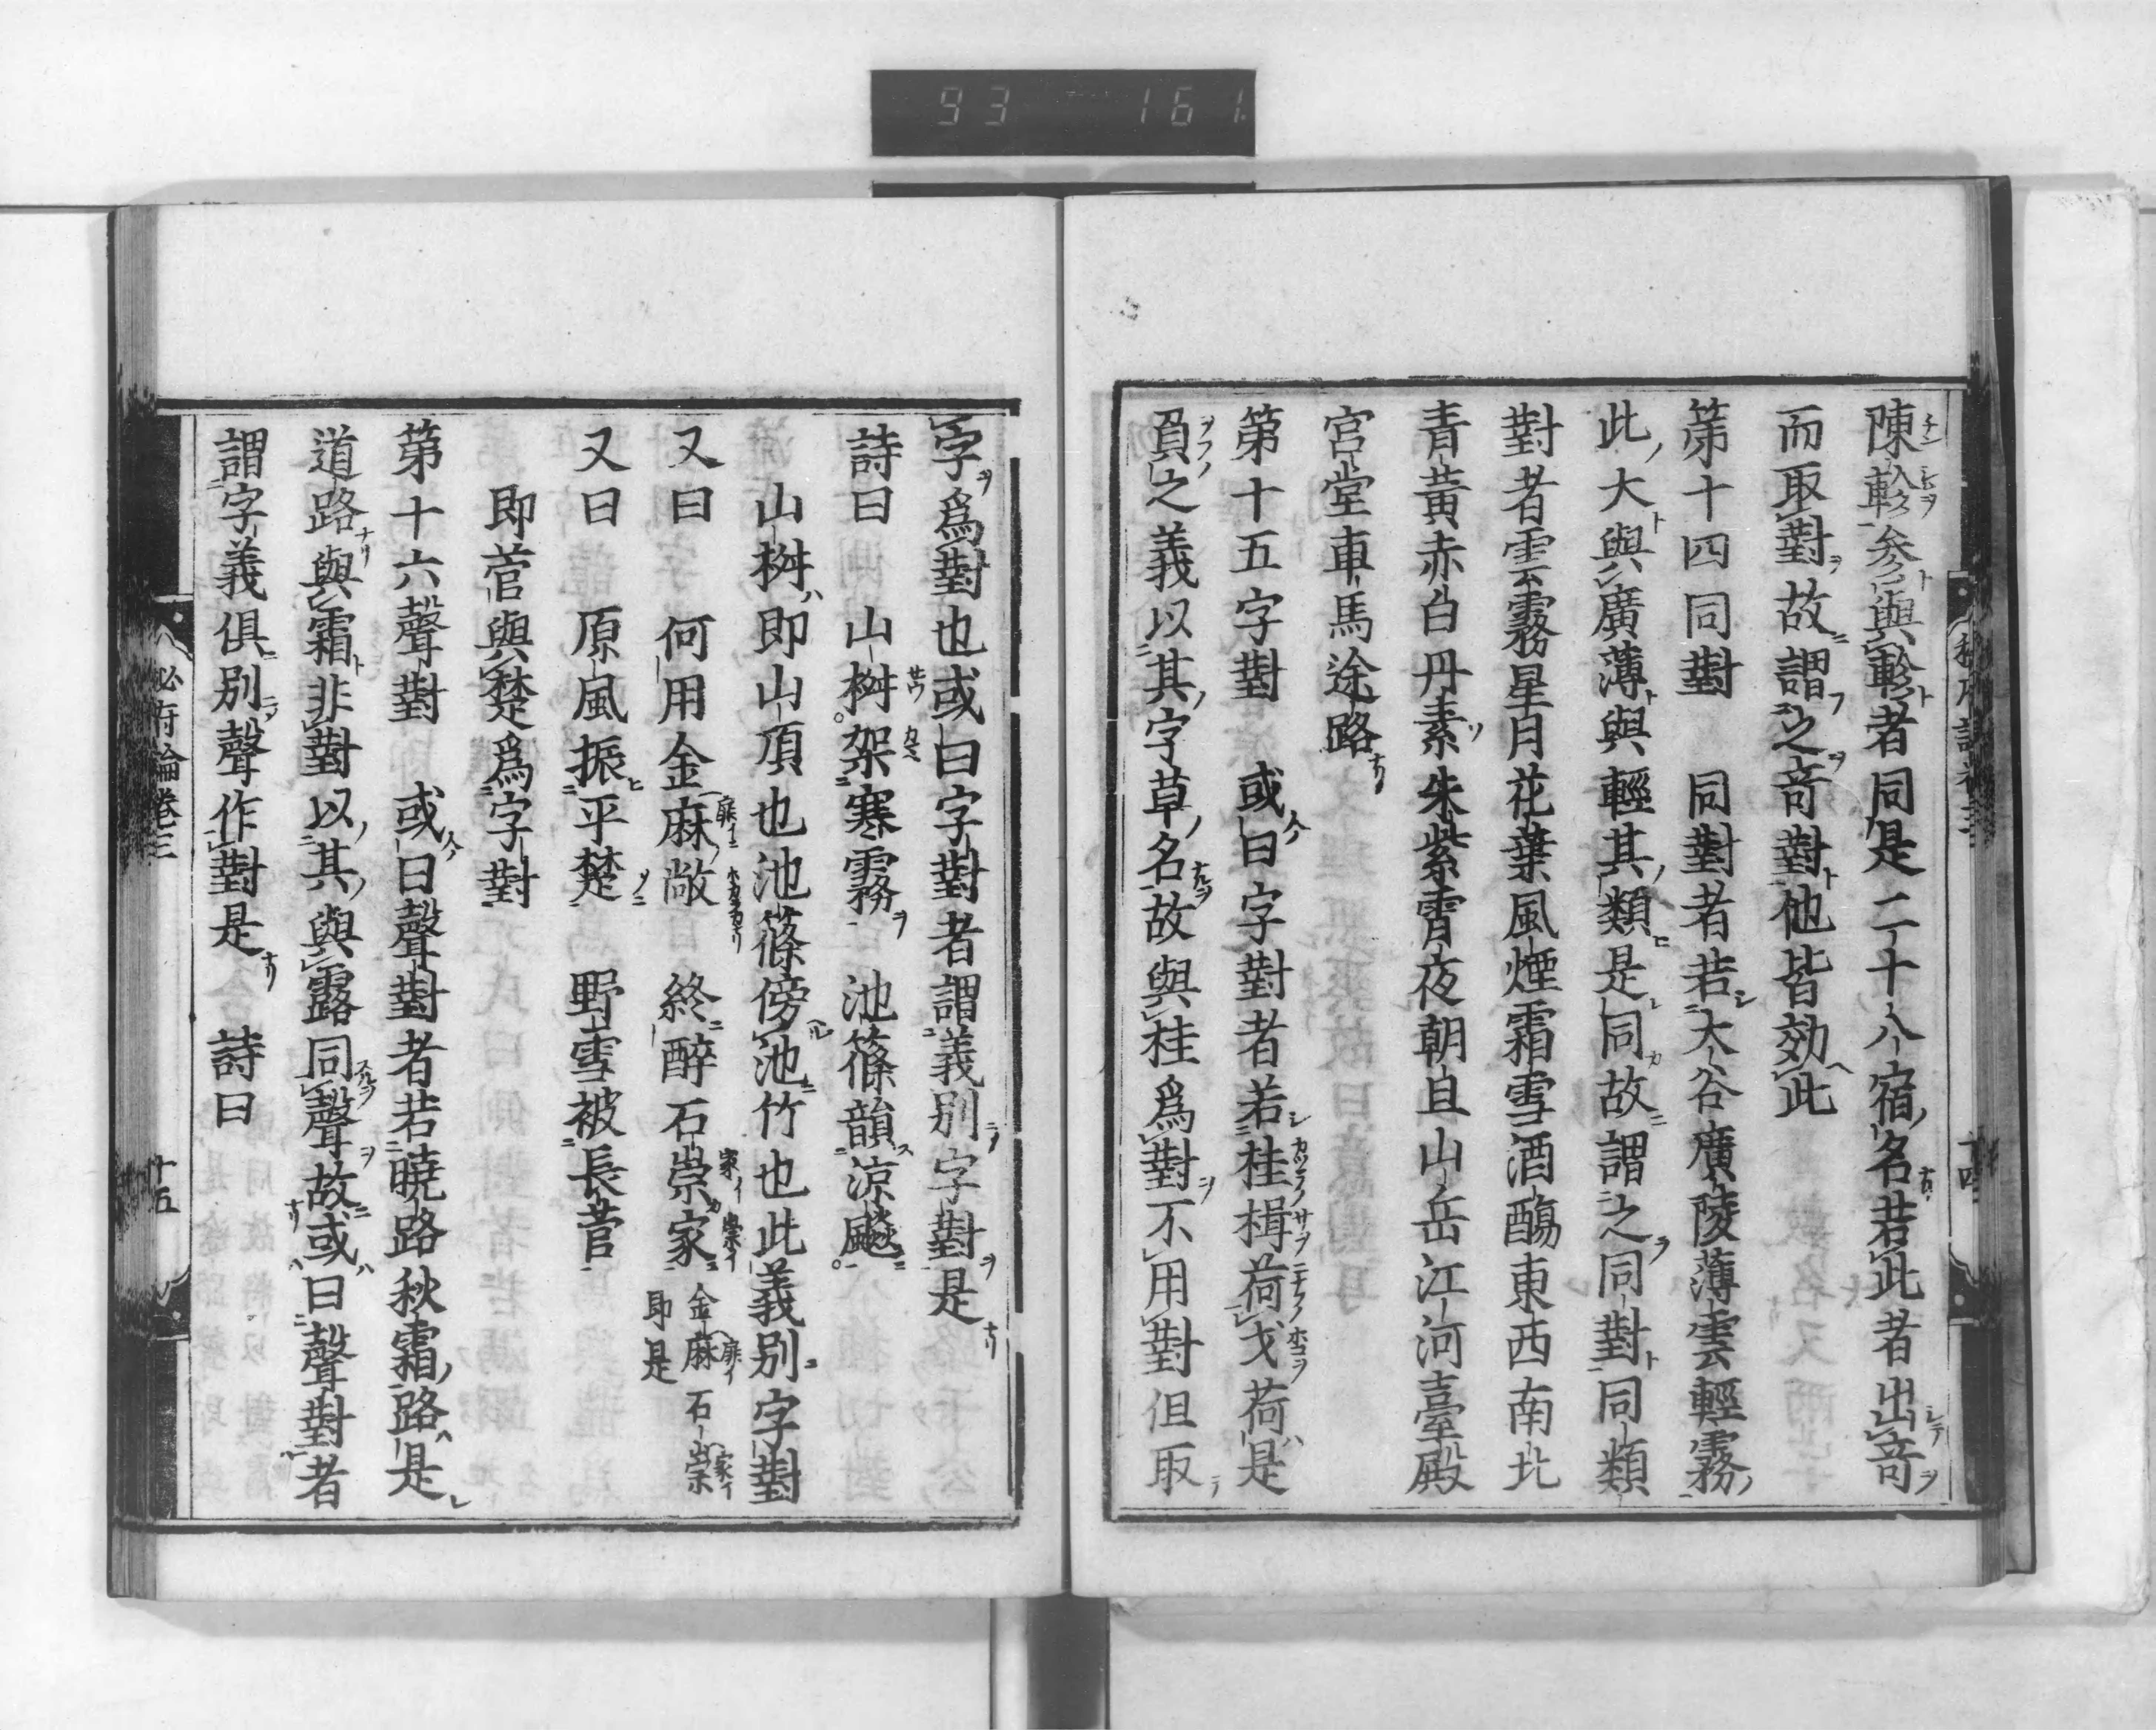 93 161
陳軫參與軫者同是二十八宿名若此者出奇
而取對故謂之奇對他皆効此
第十四同對　同對者若大谷廣陵薄雲輕霧
此大與廣薄與輕其類是同故謂之同對同類
對者雲霧星月花葉風煙霜雪酒觴東西南北
青黃赤白丹素朱紫霄夜朝旦山岳江河臺殿
宮堂車馬途路
第十五字對　或曰字對者若桂楫荷戈荷是
負之義以其字草名故與桂爲對不用對但取
字爲對也或曰字對者謂義別字對是
詩曰　山椕架寒霧　池篠韻涼飈
山椕即山頂也池篠傍池竹也此義別字對
又曰　何用金麻敞　終醉石崇家　金麻石崇即是
又曰　原風振平楚　野雪被長菅
即菅與楚爲字對
第十六聲對　或曰聲對者若曉路秋霜路是
道路與霜非對以其與露同聲故或曰聲對者
謂字義俱別聲作對是　詩曰
秘府論卷三　十四
秘府論卷三　十五